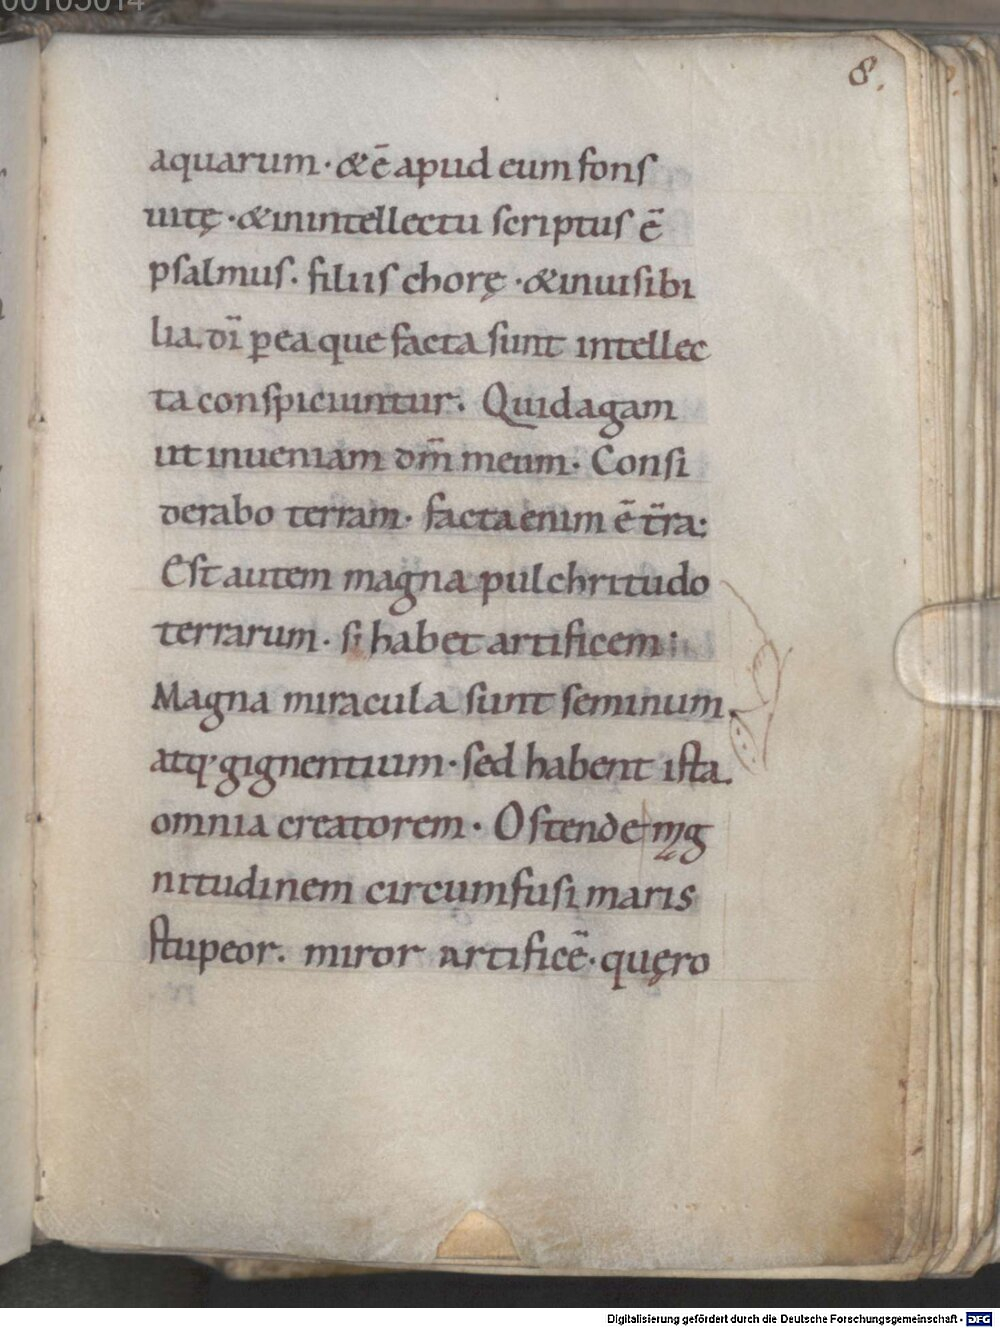 00105014
8.
aquarum · & ē apud eum fons
uitę · & inintellectu scriptus ē
psalmus. filiis chorę · & inuisibi
lia. dī ꝑ ea que facta sunt intellec
ta conspiciuntur. Quid agam
ut inueniam dm̄ meum. Consi
derabo terram. facta enim ē tr̄a:
Est autem magna pulchritudo
terrarum. si habet artificem:
Magna miracula sunt seminum
atq; gignentium · sed habent ista
omnia creatorem. Ostende mg
nitudinem circumfusi maris
stupeor. miror artificē · quęro
Digitalisierung gefördert durch die Deutsche Forschungsgemeinschaft - DFG